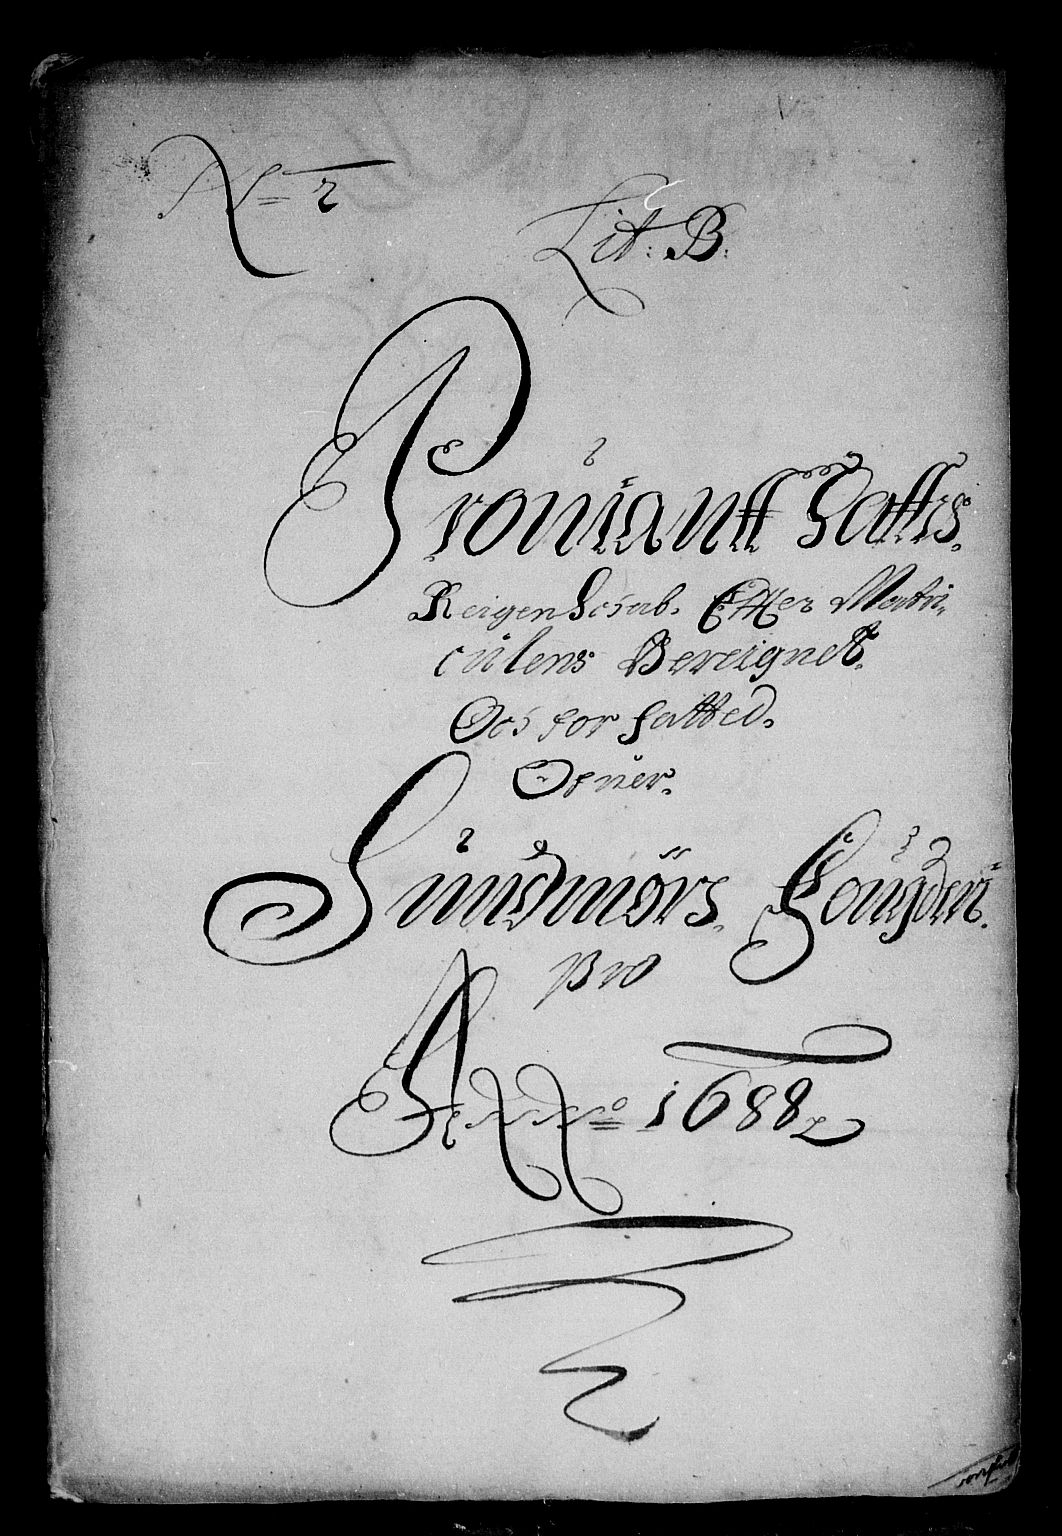 No 2
Lit: B:
Proviantt Schattis
Reigenschab. Effter Matri,
culens Bereignet.
Och forfatted.
Ofuer.
Sundmörs Fougderi.
Pro
Anno 1688